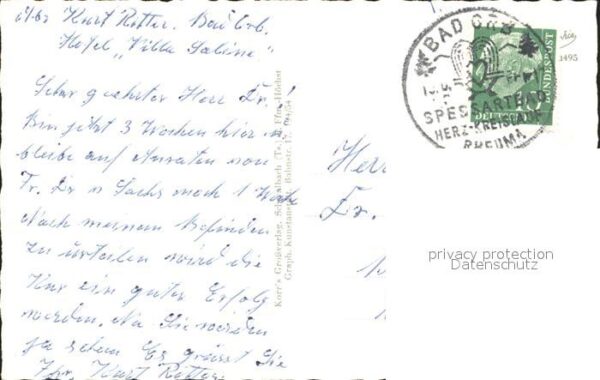 Kurt Ritter. Bad Orb.
Hotel „Villa Sabine"
Sehr geehrter Herr Dr.!
Bin jetzt 3 Wochen hier u.
bleibe auf Anraten von
Fr. Dr. Sachs noch 1 Woche
Nach meinem Befinden
zu urteilen wird die
Kur ein guter Erfolg
werden. Na Sie werden
ja sehen Es grüsst Sie
Ihr. Kurt Ritter.
Korr's Großverlag, Schwalbach (Ts.)
Graph. Kunstanstalt,
Herr
Dr.
BAD ORB
SPESSARTBAD
HERZ-KREISLAUF
RHEUMA
BUNDESPOST
1495
privacy protection
Datenschutz